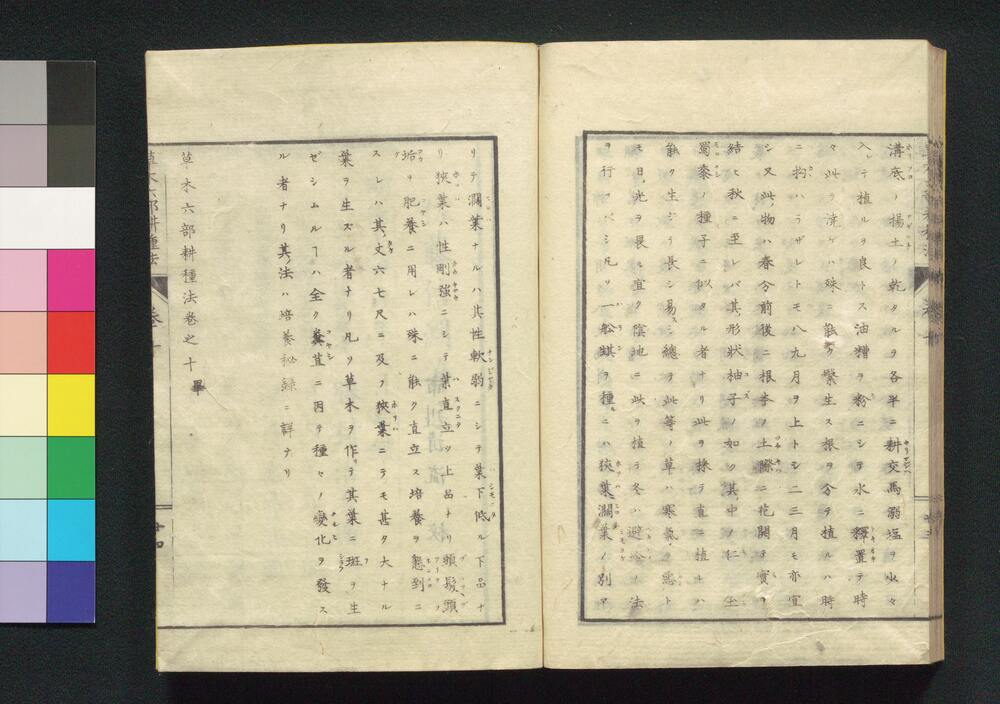 溝底ノ揚土ノ乾タルヲ各半ニ耕交馬溺塩ヲ少々
入レテ植ルヲ良トス油糟ヲ粉ニシテ水ニ釋置テ時
々此ヲ澆ゲハ殊ニ能ク繁生ス根ヲ分テ植ルハ時
ニ拘ハラザレトモ八九月ヲ上トシ二三月モ亦宜
シ又此物ハ春分前後ニ根本ノ土際ニ花開テ實ヲ
結ヒ秋ニ至レバ其形状柚子ノ如ク其中ノ仁玉
蜀黍ノ種子ニ似タル者ナリ此ヲ採テ直ニ植レハ
能ク生シテ長シ易シ總テ此等ノ草ハ寒氣ヲ惡ト
モ日光ヲ畏ル宜ク陰地ニ此ヲ植テ冬ハ避冷ノ法
ヲ行フベシ凡ソ一舩蜞ヲ種ルニハ狹葉濶葉ノ別ア
リテ濶葉ナルハ其性軟弱ニシテ葉下低ル下品ナ
リ狹葉ハ性剛強ニシテ葉直立ツ上品ナリ頭髮頭
垢ヲ肥養ニ用レハ殊ニ能ク直立ス培養ヲ懇到ニ
スレハ其丈六七尺ニ及フ狹葉ニテモ甚タ大ナル
葉ヲ生ズル者ナリ凡ソ草木ヲ作リテ其葉ニ斑ヲ生
ゼシムルヿハ全ク糞苴ニ因テ種々ノ變化ヲ發ス
ル者ナリ其法ハ培養祕録ニ詳ナリ
草木六部耕種法卷之十畢